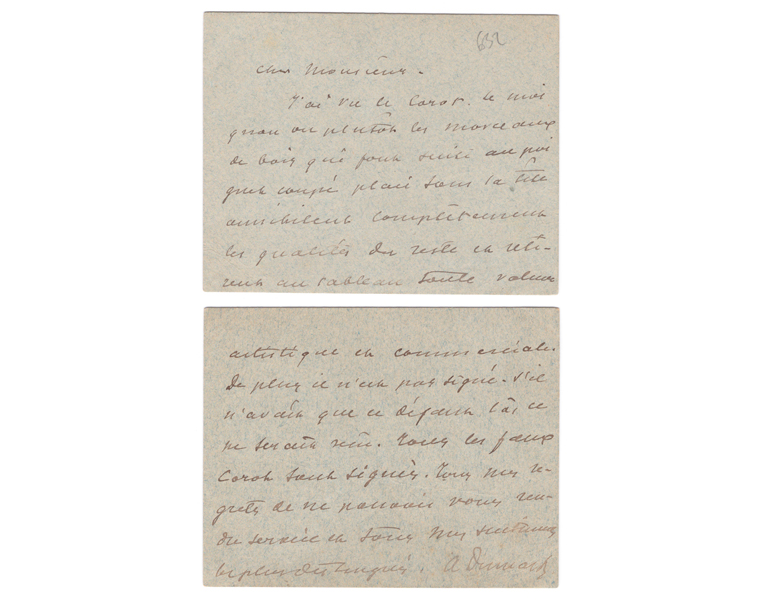 632
cher Monsieur.
J'ai vu le Corot. le moi
gnon ou plutôt les morceaux
de bois qui font suite au poi
gnet coupé plait sans la
annihilent complètement
les qualités du reste et reti-
rent au tableau toute valeur
artistique et commerciale.
De plus il n'est pas signé. S'il
n'avait que ce défaut là, ce
ne serait rien. Tous les faux
Corot sont signés. Tous mes re-
grets de ne pouvoir vous ren-
dre service et tous mes sentiments
les plus distingués.